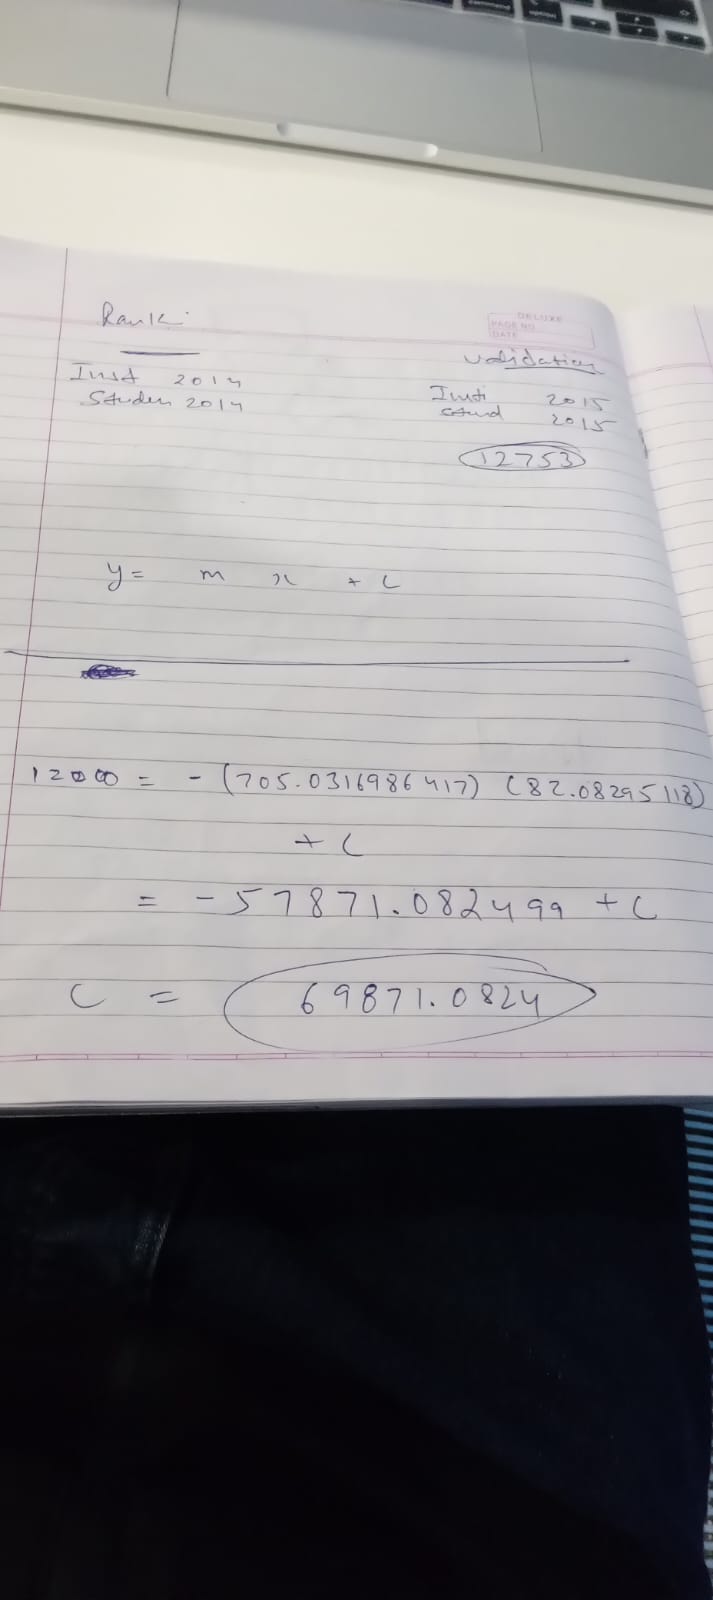 DELUXE
PAGE NO
DATE
Rank
Inst 2014
Studen 2014
validation
Insti 2015
Stud 2015
12753
y = m x + C
12000 = - (705.0316986417) (82.08295118)
+ C
= - 57871.082499 + C
C = 69871.0824